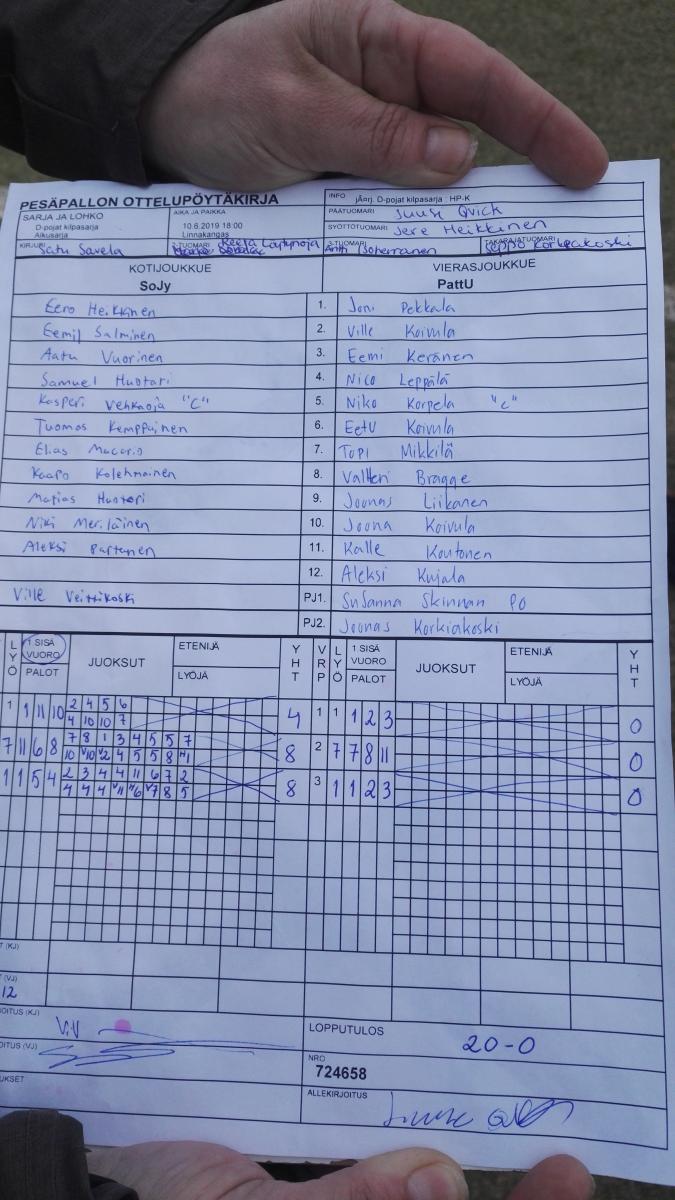 PESÄPALLON OTTELUPÖYTÄKIRJA
INFO jÄnrj. D-pojat kilpasarja : HP-K
SARJA JA LOHKO
D-pojat kilpasarja
Alkusarja
AIKA JA PAIKKA
10.6.2019 18:00
Linnakangas
PÄÄTUOMARI Juuse Qvick
SYÖTTÖTUOMARI Jere Heikkinen
KIRJURI Satu Savela
2-TUOMARI Reeta
3-TUOMARI Antti
TAKARAJATUOMARI Seppo Korkeakoski
KOTIJOUKKUE
SoJy
VIERASJOUKKUE
PattU
Eero Heikkinen 1. Joni Pekkala
Eemil Salminen 2. Ville Koivula
Aatu Vuorinen 3. Eemi Keränen
Samuel Huotari 4. Nico Leppälä
Kasperi Vehkaoja "C" 5. Niko Korpela "c"
Tuomas Kemppainen 6. Eetu Koivula
Elias 7. Topi Mikkilä
Kaapo Kolehmainen 8. Valtteri Bragge
Matias Huotari 9. Joonas Liikanen
Niki Meriläinen 10. Joona Koivula
Aleksi Partanen 11. Kalle Koutonen
12. Aleksi Kujala
Ville Veittikoski PJ1. Susanna Skinnari PO
PJ2. Joonas Korkiakoski
LYÖ 1.SISÄ VUORO PALOT JUOKSUT ETENIJÄ LYÖJÄ YHT VRP LYÖ 1.SISÄ VUORO PALOT JUOKSUT ETENIJÄ LYÖJÄ YHT
1 1 11 10 2 4 5 6 4 1 1 1 2 3 0
4 10 10 7
7 11 6 8 7 8 1 3 4 5 5 7 8 2 7 7 8 11 0
10 V10 V2 4 5 5 8 H1
1 1 5 4 2 3 4 4 11 6 7 2 8 3 1 1 2 3 0
4 4 4 V11 V6 V7 8 5
(KJ)
(VJ)
12
OITUS (KJ) V.V
OITUS (VJ)
UKSET
LOPPUTULOS 20-0
NRO
724658
ALLEKIRJOITUS